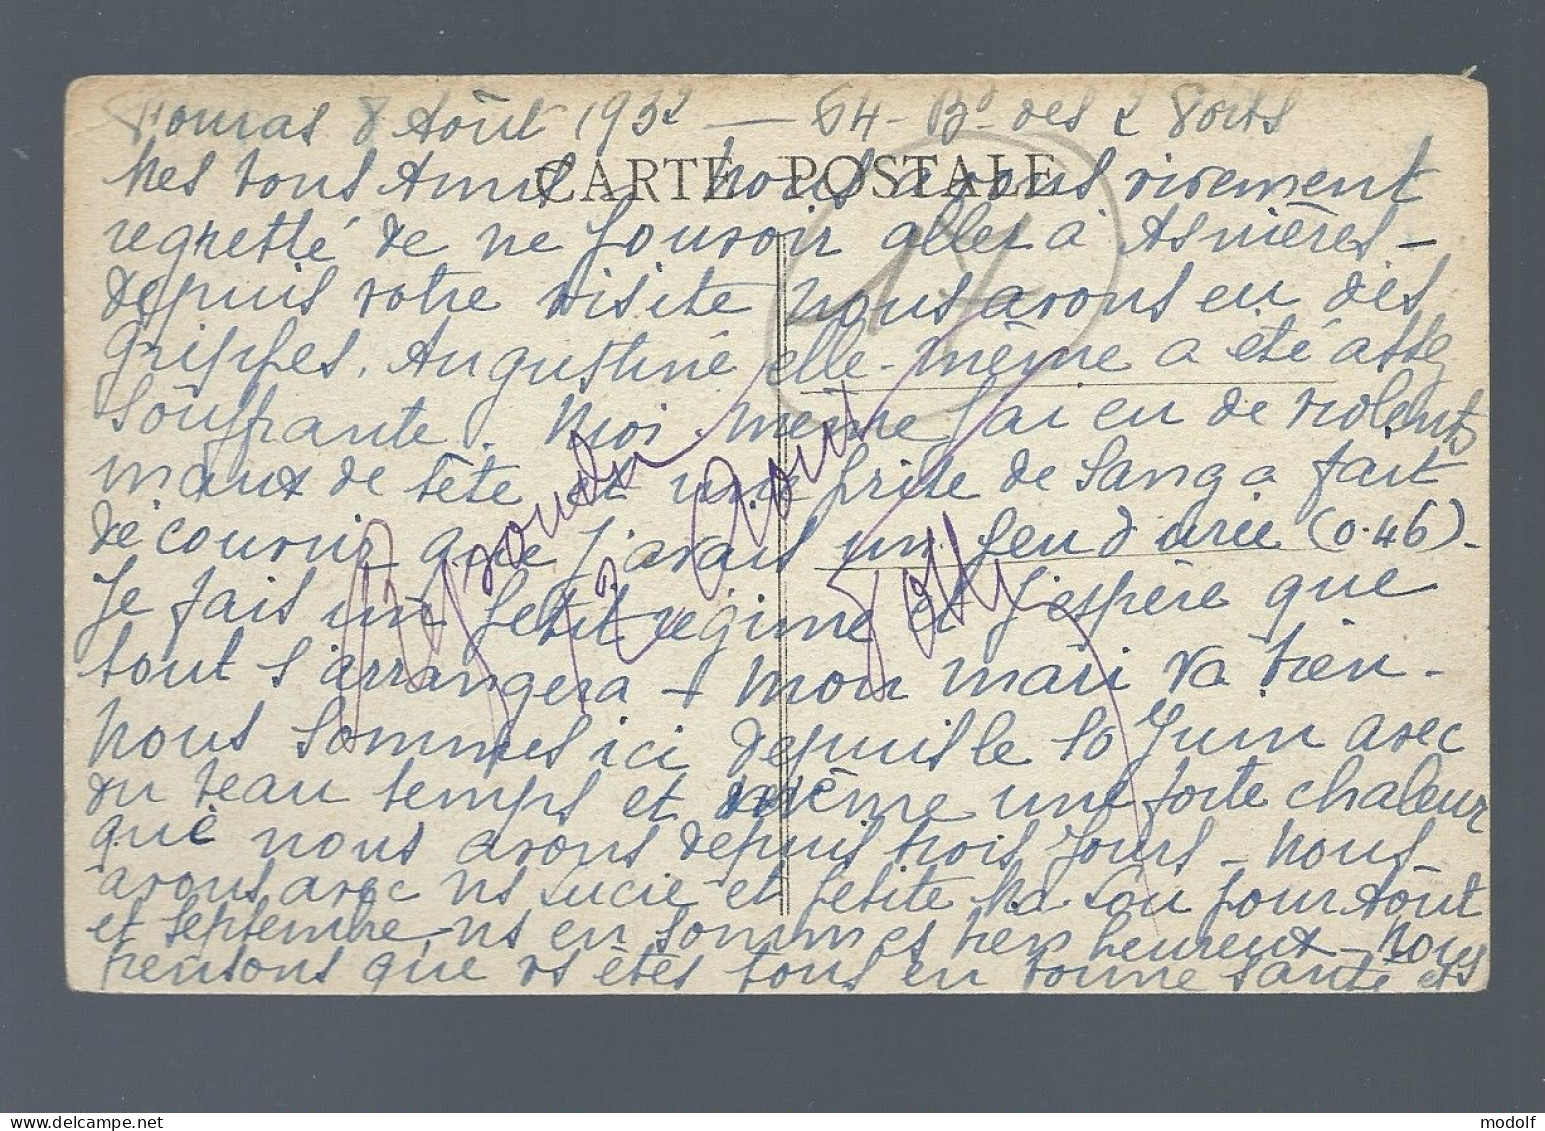 Fouras 8 Août 1932 — 64 - Bd des 2 Ports
CARTE POSTALE
Mes bons Amis nous avons vivement
regretté de ne pouvoir aller à Asnières -
depuis votre visite nous avons eu des
grippes. Augustine elle-même a été assez
souffrante. Moi-même j'ai eu de violents
maux de tête et une prise de sang a fait
découvrir que j'avais un peu d'urée (0.46) -
Je fais un petit régime et j'espère que
tout s'arrangera + Mon mari va bien -
Nous sommes ici depuis le 10 Juin avec
du beau temps et même une forte chaleur
que nous avons depuis trois jours - Nous
avons avec ns Lucie et petite pour Août
et septembre, ns en sommes bien heureux - Nous
pensons que vs êtes tous en bonne santé et
Répondu
12 Août
14
www.delcampe.net
modolf